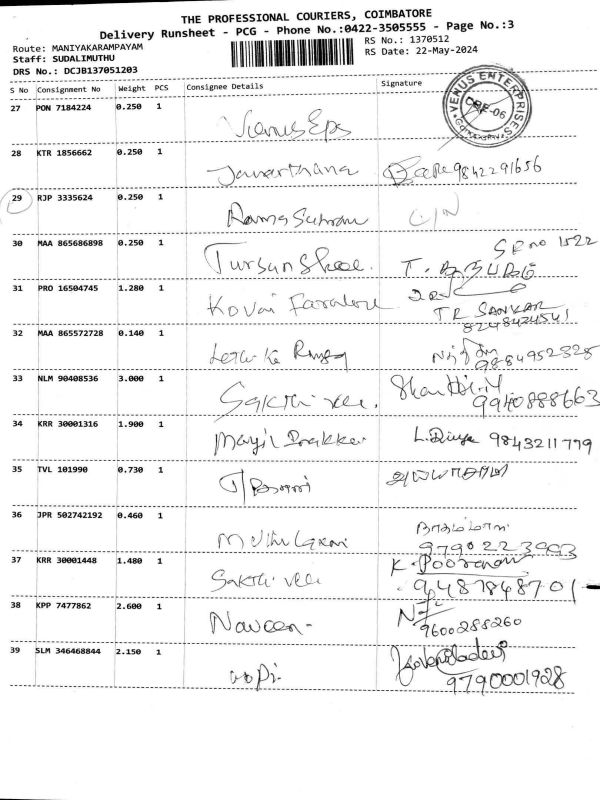 THE PROFESSIONAL COURIERS, COIMBATORE
Delivery Runsheet - PCG - Phone No.:0422-3505555 - Page No.:3
Route: MANIYAKARAMPAYAM
RS No.: 1370512
Staff: SUDALIMUTHU
RS Date: 22-May-2024
DRS No.: DCJB137051203
S No Consignment No Weight PCS Consignee Details Signature
VENUS ENTERPRISES
CBE-06
27 PON 7184224 0.250 1
28 KTR 1856662 0.250 1 Janarthana 9842291656
29 RJP 3335624 0.250 1
30 MAA 865686898 0.250 1 SR no 1522
31 PRO 16504745 1.280 1 Kovai
TR SANKAR
8248424541
32 MAA 865572728 0.140 1
9884952328
33 NLM 90408536 3.000 1 Sakthi vel.
9940888663
34 KRR 30001316 1.900 1 L. Divya 9843211779
35 TVL 101990 0.730 1
36 JPR 502742192 0.460 1
9790223993
37 KRR 30001448 1.480 1 Sakthi vel K. Pooranam
9487848701
38 KPP 7477862 2.600 1 Naveen-
9600288260
39 SLM 346468844 2.150 1 Gopi.
9790001928